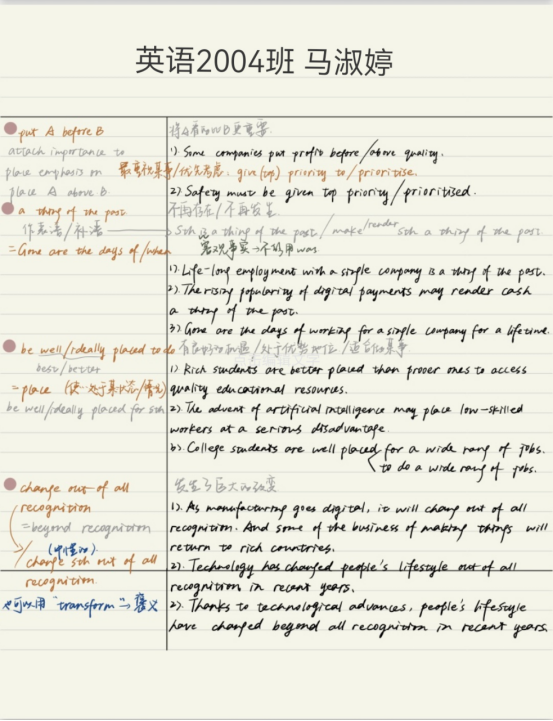 英语2004班 马淑婷
put A before B
attach importance to
place emphasis on
place A above B.
最重视某事/优先考虑. give (top) priority to / prioritise.
1). Some companies put profit before /above quality.
2) Safety must be given top priority / prioritised.
a thing of the past
作表语/补语
= Gone are the days of /when
不再存在/不再发生
sth is a thing of the past / make/render sth a thing of the past.
客观事实→不能用was
1). Life-long employment with a single company is a thing of the past.
2). The rising popularity of digital payments may render cash
a thing of the past.
3) Gone are the days of working for a single company for a lifetime.
be well/ideally placed to do
best/better
= place
be well/ideally placed for sth
1) Rich students are better placed than proer ones to access
quality educational resources.
2). The advent of artificial intelligence may place low-skilled
workers at a serious disadvantage.
College students are well placed for a wide rang of jobs.
to do a wide rang of jobs.
change out of all
recognition
=beyond recognition
change sth out of all
recognition.
也可以用 "transform" → 褒义
发生了巨大的改变
1). As manufacturing goes digital, it will chang out of all
recognition. And some of the business of making things will
return to rich countries.
2). Technology has changed people's lifestyle out of all
recognition in recent years.
2). Thanks to technological advances, people's lifestyle
have changed beyond all recognition in recent years.